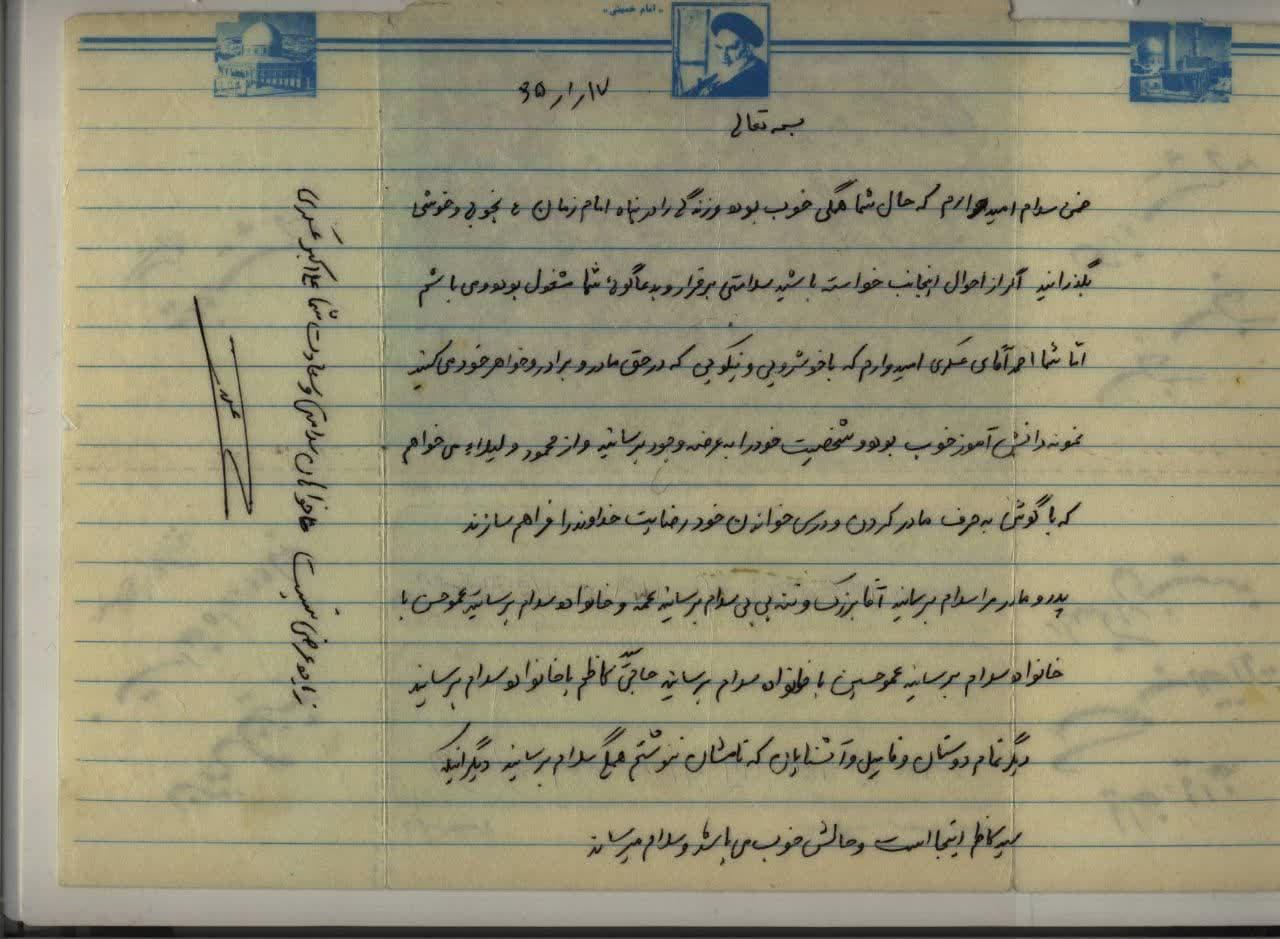 « امام خمینی »
۶۵/۱/۱۷
بسمه تعالی
ضمن سلام امیدوارم که حال شما همگی خوب بوده و زندگی را در پناه امام زمان ع بخوبی و خوشی
بگذرانید اگر از احوال اینجانب خواسته باشید سلامتی برقرار و بدعاگوئی شما مشغول بوده و می باشم
امّا شما احمد آقای عسکری امیدوارم که با خوشرویی و نیکویی که در حق مادر و برادر و خواهر خود می کنید
نمونه دانش آموز خوب بوده و شخصیت خود را به عرضه وجود برسانید و از محمود و لیلاء می خواهم
که با گوش به حرف مادر کردن و درس خواندن خود رضایت خداوند را فراهم سازند
پدر و مادر مرا سلام برسانید آقا بزرگ و ننه بی بی سلام برسانید عمه و خانواده سلام برسانید عمو حسن با
خانواده سلام برسانید عمو حسین با خانواده سلام برسانید حاجی سید کاظم با خانواده سلام برسانید
دیگر تمام دوستان و فامیل و آشنایان که نامشان ننوشتم همگی سلام برسانید دیگر اینکه
سید کاظم اینجا است و حالش خوب می باشد و سلام میرساند
زیاده عرضی نیست خواهان سلامتی و سعادت شما علی اکبر عسکری